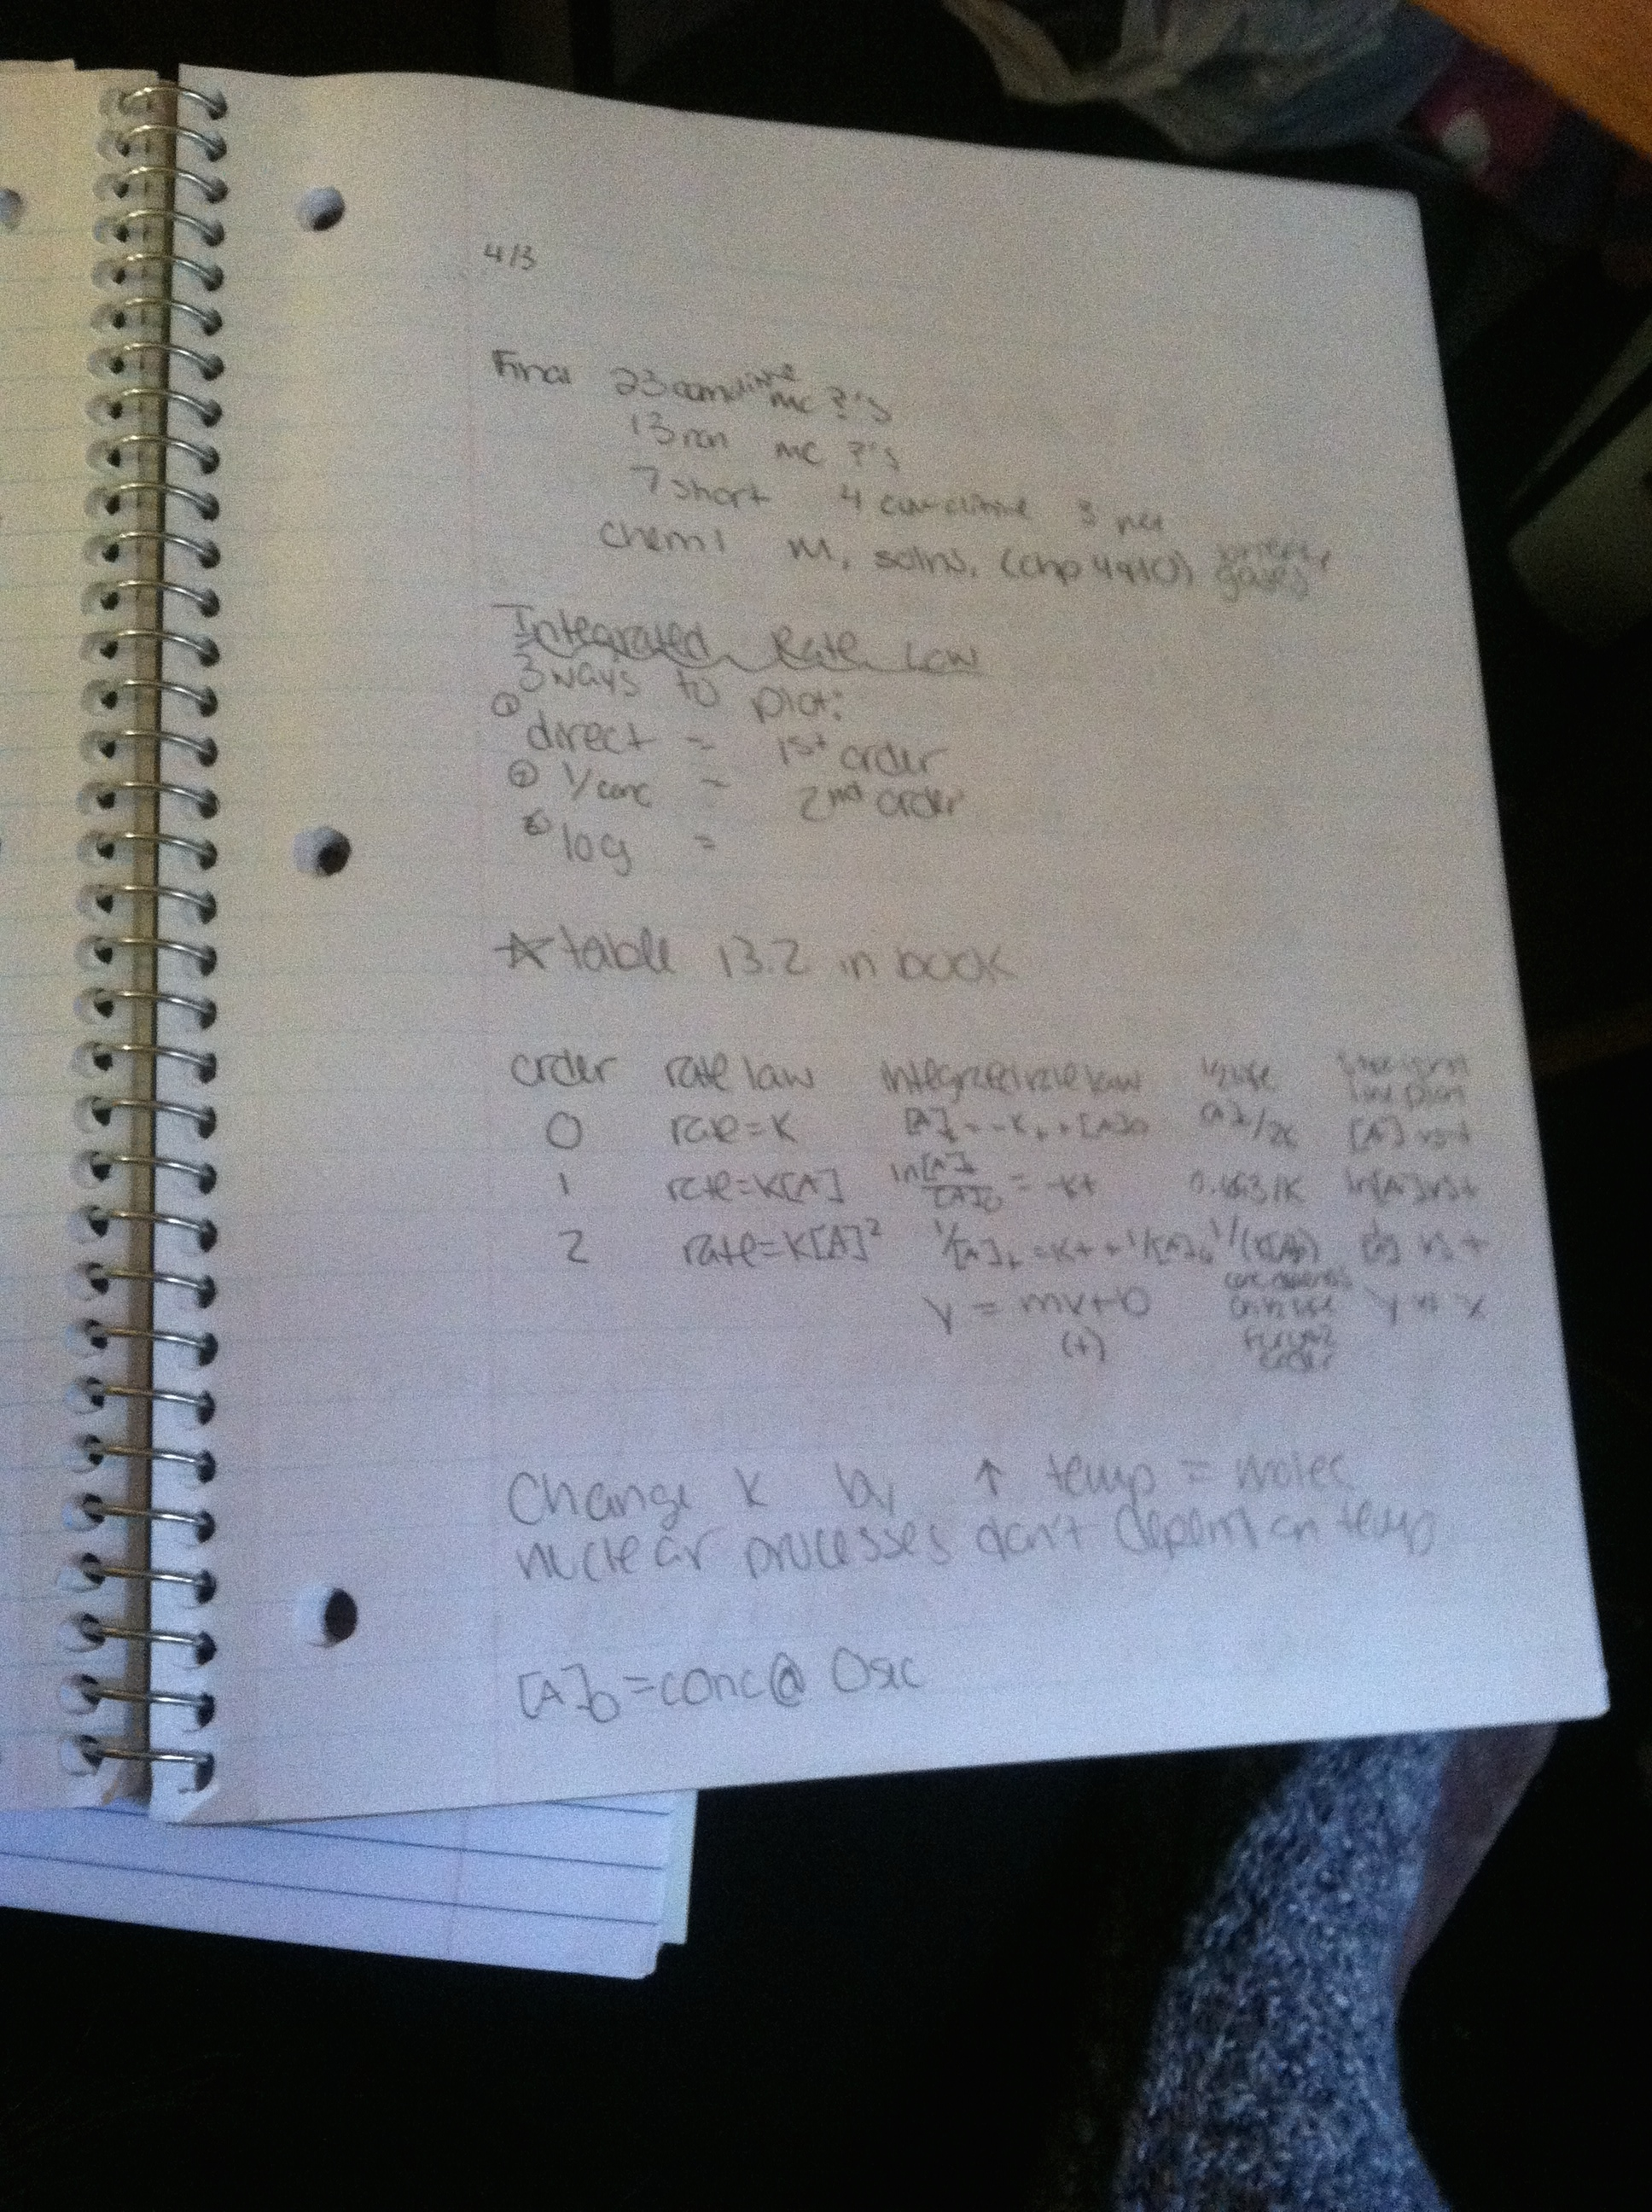 4/3
Final 23 cumulitive mc ?'s
13 mc ?'s
7 short 4 cumulitive 3
chem 1 M, solns, (chp 4 & 10) gases
Integrated Rate Law
3 ways to plot:
① direct = 1st order
② 1/conc = 2nd order
③ log =
☆ table 13.2 in book
order rate law integrated rate law 1/2 life straight line plot
0 rate=K [A]t=-Kt+[A]0 [A]0/2K [A] vs t
1 rate=K[A] ln[A]t/[A]0 = -Kt 0.693/K ln[A] vs t
2 rate=K[A]² 1/[A]t=Kt+1/[A]0 1/(K[A]0) vs t
y = mx+b y vs x
(+)
Change K by ↑ temp = molec
nuclear processes don't depend on temp
[A]0=conc@ 0sec